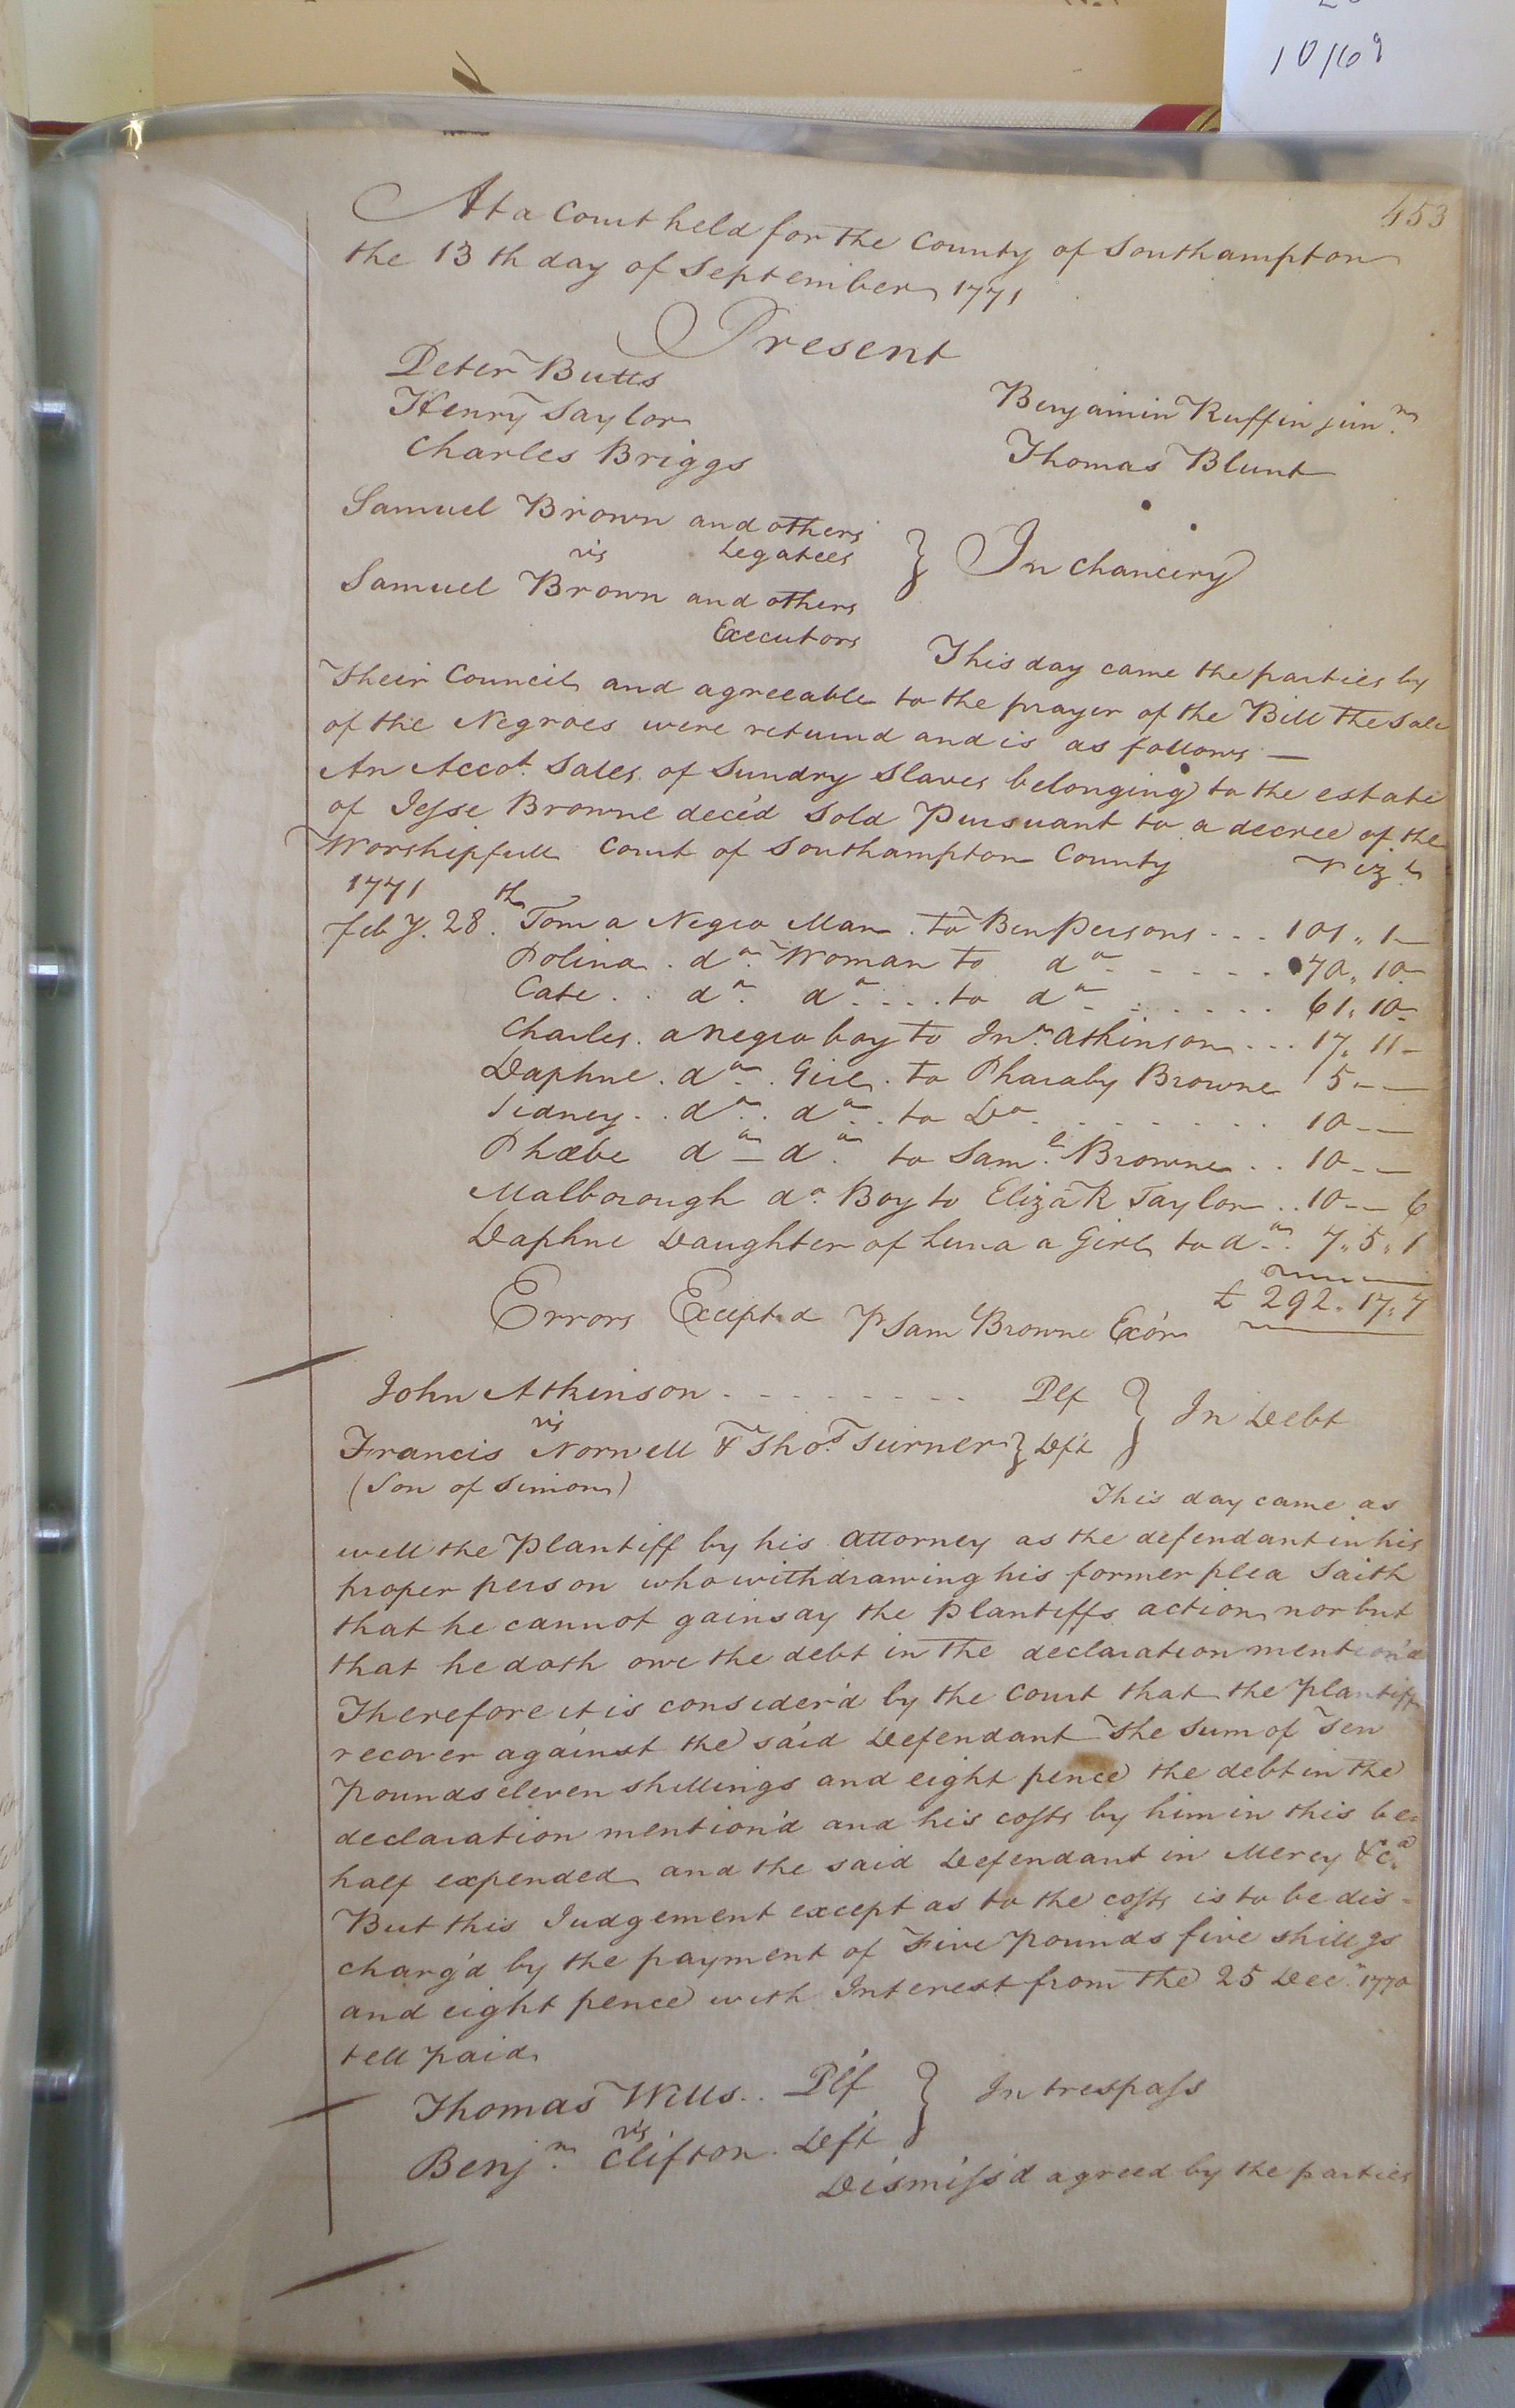 10/69
453
At a Court held for the County of Southampton
the 13th day of September 1771
Present
Peter Butts
Henry Taylor
Charles Briggs
Benjamin Ruffin jun.r
Thomas Blunt
Samuel Brown and others
vs Legatees
Samuel Brown and others
Executors
} In Chancery
This day came the parties by
their Council and agreeable to the prayer of the Bill the Sale
of the Negroes were returnd and is as follows —
An Accot. Sales of Sundry Slaves belonging to the estate
of Jesse Browne dece'd Sold Pursuant to a decree of the
Worshipfull Court of Southampton County Vizt.
1771
feb y. 28th. Tom a Negro Man to Ben Persons - - - 101,, 1—
Polina. do. Woman to do - - - - - 70,, 10—
Cate . . do. do - - . to do - - - - - - 61,, 10—
Charles. a Negro boy to Jno. Atkinson - - - 17,, 11—
Daphne. do. Girl. to Pharaby Browne 15 - —
Sidney - . do. do . . to Do - - - - - - - - 10 - —
Phœbe do do. to Saml. Browne . . 10 - —
Malborough do. Boy to Eliza R Taylor . . 10 - — 6
Daphne Daughter of Luna a Girl to do - . 7,, 5,, 1
£ 292,, 17,, 7
Errors Excepted P Saml Browne Exor
John Atkinson - - - - - - - - - Plf
vs
Francis Norwell & Thos. Turner } Deft
(Son of Simon)
} In Debt
This day came as
well the Plantiff by his Attorney as the defendant in his
proper person who withdrawing his former plea Saith
that he cannot gainsay the Plantiffs action nor but
that he doth owe the debt in the declaration mention'd
Therefore it is consider'd by the Court that the plantiff
recover against the said Defendant the Sum of Ten
Pounds eleven shillings and eight pence the debt in the
declaration mention'd and his costs by him in this be-
half expended and the said Defendant in Mercy &c.a
But this Judgement except as to the costs is to be dis-
charg'd by the payment of Five Pounds five shillgs
and eight pence with Interest from the 25 Decr. 1770
tell paid
Thomas Wills . . Plf
vs
Benjn. Clifton. Deft
} In trespass
Dismiss'd agreed by the parties